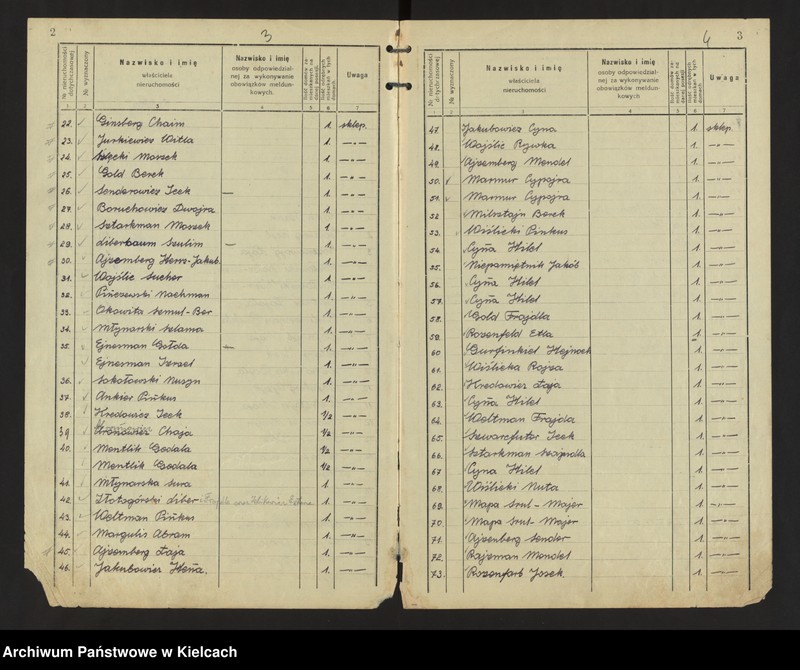 2
3
№ nieruchomości dotychczasowej
№ wyznaczony
Nazwisko i imię
właściciela
nieruchomości
Nazwisko i imię
osoby odpowiedzial-
nej za wykonywanie
obowiązków meldun-
kowych.
Uwaga
1 2 3 4 5 6 7
22. Ginsberg Chaim 1. sklep.
23. Jurkiewicz Witla 1. —„—
24. Moszek 1. —„—
25. Gold Berek 1. —„—
26. Senderowicz Icek — 1. —„—
27. Boruchowicz Dwojra 1. —„—
28. Sztarkman Moszek 1. —„—
29. Liberbaum Szulim — 1. —„—
30. Ajzemberg Hersz-Jakub. 1. —„—
31. Wajślic Sucher 1. —„—
32. Pińczewski Nachman 1. —„—
33. Okowita Semul-Ber 1. —„—
34. Młynarski Szlama 1. —„—
35. Ejnesman Gołda — 1. —„—
Ejnesman Izrael 1. —„—
36. Sokołowski Nusyn 1. —„—
37. Ankier Pińkus 1. —„—
38. Hredowicz Icek 1/2 —„—
39 Chaja 1/2 —„—
40. Mentlik Gedala 1/2 —„—
Mentlik Gedala 1/2 —„—
41. Młynarska Sura 1. —„—
42. Złotogórski Liber 1. —„—
43. Weltman Pińkus 1. —„—
44. Margulis Abram 1. —„—
45. Ajzemberg Łaja 1. —„—
46. Jakubowicz Heńa. 1. —„—
4
3
№ nieruchomości dotychczasowej
№ wyznaczony
Nazwisko i imię
właściciela
nieruchomości
Nazwisko i imię
osoby odpowiedzial-
nej za wykonywanie
obowiązków meldun-
kowych.
Uwaga
1 2 3 4 5 6 7
47. Jakubowicz Cyna 1. sklep.
48. Wajślic Rywka 1. —„—
49. Ajzemberg Mendel 1. —„—
50. Marmur Cypojra 1. —„—
51. Marmur Cypojra 1. —„—
52 Milsztajn Berek 1. —„—
53. Wiślicki Pinkus 1. —„—
54. Cyna Hilel 1. —„—
55. Niepamiętnik Jakób 1. —„—
56. Cyna Hilel 1. —„—
57. Cyna Hilel 1. —„—
58. Gold Frajdla 1. —„—
59. Rozenfeld Etla 1. —„—
60 Gurfinkiel Hejnoch 1. —„—
61. Wiślicka Rojza 1. —„—
62. Hredowicz Łaja 1. —„—
63. Cyna Hilel 1. —„—
64. Weltman Frajdla 1. —„—
65. Szwarcfuter Icek 1. —„—
66. Sztarkman Szajndla 1. —„—
67 Cyna Hilel 1. —„—
68. Wiślicki Nuta 1. —„—
69. Mapa Srul-Majer 1. —„—
70. Mapa Srul-Majer 1. —„—
71. Ajzenberg Sender 1. —„—
72. Rajzman Mendel 1. —„—
73. Rozenfarb Josek. 1. —„—
Archiwum Państwowe w Kielcach